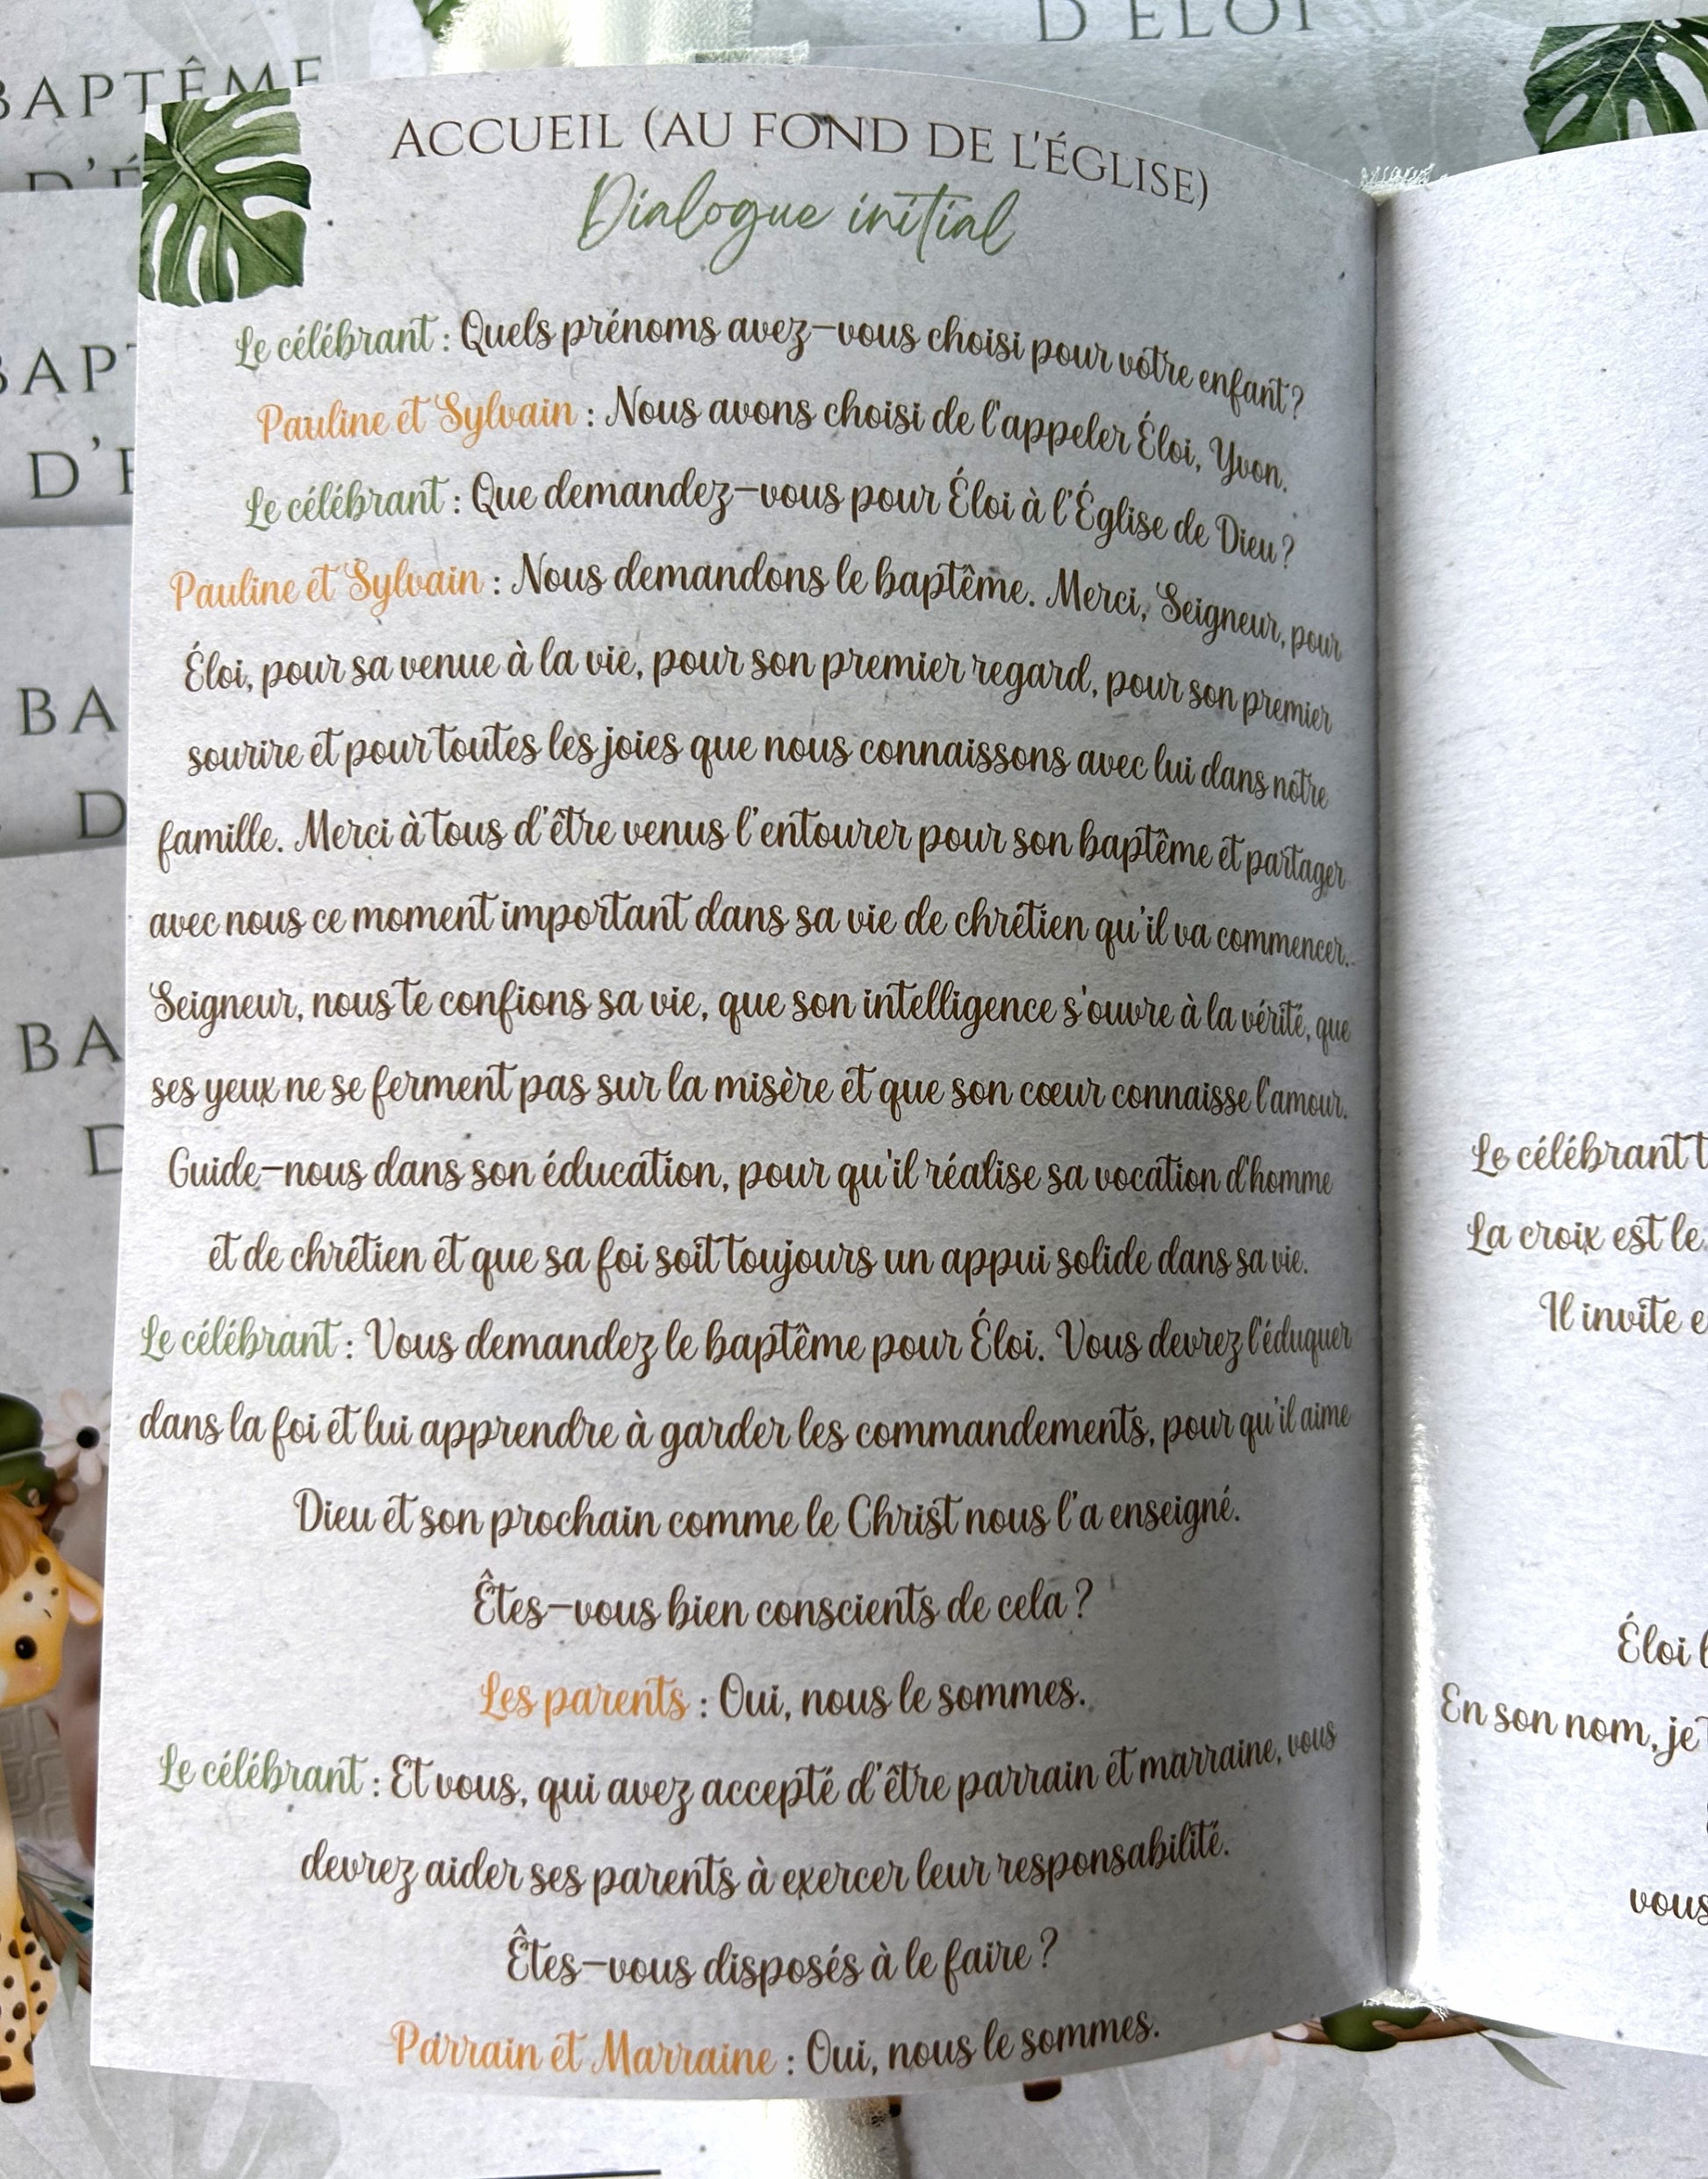 BAPTÊME
D'ÉLOI
ACCUEIL (AU FOND DE L'ÉGLISE)
Dialogue initial
Le célébrant : Quels prénoms avez-vous choisi pour votre enfant ?
Pauline et Sylvain : Nous avons choisi de l'appeler Éloi, Yvon.
Le célébrant : Que demandez-vous pour Éloi à l'Église de Dieu ?
Pauline et Sylvain : Nous demandons le baptême. Merci, Seigneur, pour
Éloi, pour sa venue à la vie, pour son premier regard, pour son premier
sourire et pour toutes les joies que nous connaissons avec lui dans notre
famille. Merci à tous d'être venus l'entourer pour son baptême et partager
avec nous ce moment important dans sa vie de chrétien qu'il va commencer.
Seigneur, nous te confions sa vie, que son intelligence s'ouvre à la vérité, que
ses yeux ne se ferment pas sur la misère et que son cœur connaisse l'amour.
Guide-nous dans son éducation, pour qu'il réalise sa vocation d'homme
et de chrétien et que sa foi soit toujours un appui solide dans sa vie.
Le célébrant : Vous demandez le baptême pour Éloi. Vous devrez l'éduquer
dans la foi et lui apprendre à garder les commandements, pour qu'il aime
Dieu et son prochain comme le Christ nous l'a enseigné.
Êtes-vous bien conscients de cela ?
Les parents : Oui, nous le sommes.
Le célébrant : Et vous, qui avez accepté d'être parrain et marraine, vous
devrez aider ses parents à exercer leur responsabilité.
Êtes-vous disposés à le faire ?
Parrain et Marraine : Oui, nous le sommes.
Le célébrant
La croix est le
Il invite
Éloi
En son nom, je
vous